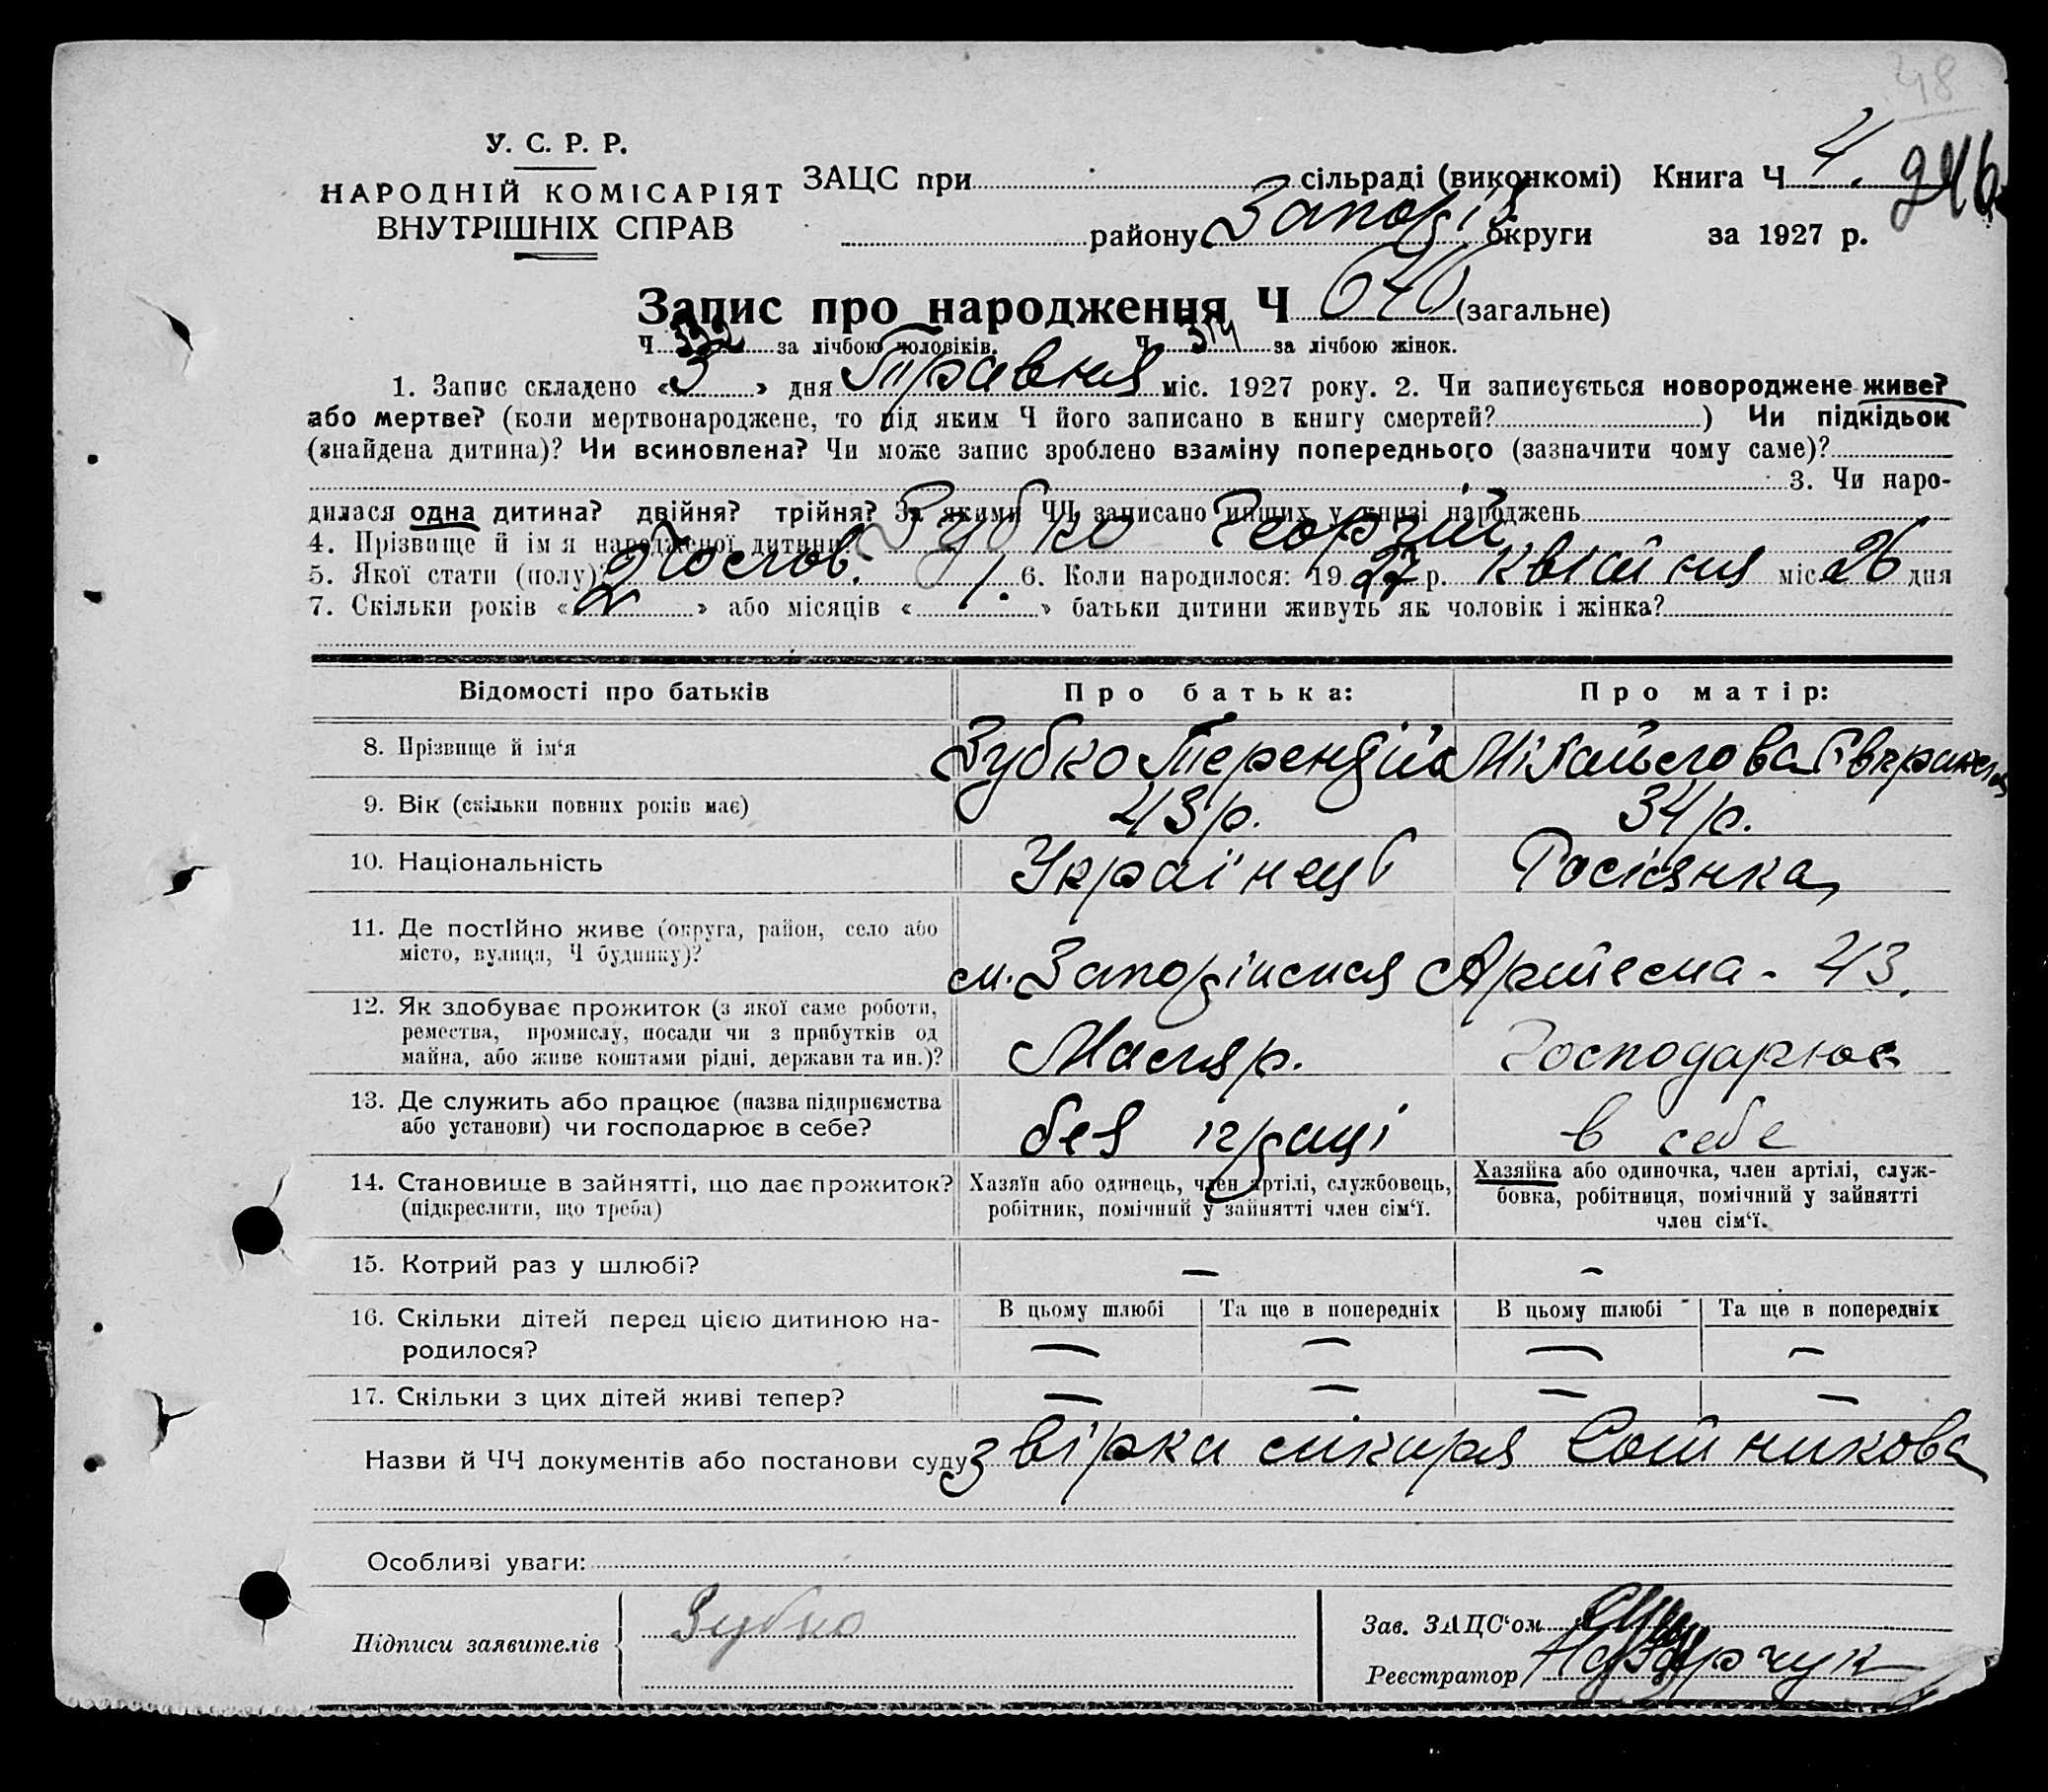 48
У. С. Р. Р.
НАРОДНІЙ КОМІСАРІЯТ
ВНУТРІШНІХ СПРАВ
ЗАЦС при сільраді (виконкомі) Книга Ч 4. 246
району Запоріз округи за 1927 р.
Запис про народження Ч 646 (загальне)
Ч 332 за лічбою чоловіків. Ч 314 за лічбою жінок.
1. Запис складено «3» дня Травня міс. 1927 року. 2. Чи записується новороджене живе?
або мертве? (коли мертвонароджене, то під яким Ч його записано в книгу смертей? ) Чи підкідьок
(знайдена дитина)? Чи всиновлена? Чи може запис зроблено взаміну попереднього (зазначити чому саме)?
3. Чи наро-
дилася одна дитина? двійня? трійня? За якими ЧЧ записано инших у книзі народжень
4. Прізвище й ім'я народженої дитини? Зубко Георгій
5. Якої стати (полу)? Чолов. 6. Коли народилося: 1927 р. квітня міс. 26 дня
7. Скільки років «2» або місяців « » батьки дитини живуть як чоловік і жінка?
Відомості про батьків Про батька: Про матір:
8. Прізвище й ім'я Зубко Терентій Міхайлова
9. Вік (скільки повних років має) 43 р. 34 р.
10. Національність Українець Росіянка
11. Де постійно живе (округа, район, село або
місто, вулиця, Ч будинку)? м. Запоріжжя Артема - 43.
12. Як здобуває прожиток (з якої саме роботи,
ремества, промислу, посади чи з прибутків од
майна, або живе коштами рідні, держави та ин.)? Маляр. Господарює
13. Де служить або працює (назва підприємства
або установи) чи господарює в себе? без праці в себе
14. Становище в зайнятті, що дає прожиток?
(підкреслити, що треба)
Хазяїн або одинець, член артілі, службовець,
робітник, помічний у зайнятті член сім'ї.
Хазяйка або одиночка, член артілі, служ-
бовка, робітниця, помічний у зайнятті
член сім'ї.
15. Котрий раз у шлюбі? — —
16. Скільки дітей перед цією дитиною на-
родилося?
В цьому шлюбі Та ще в попередніх В цьому шлюбі Та ще в попередніх
— — — —
17. Скільки з цих дітей живі тепер? — — — —
Назви й ЧЧ документів або постанови суду звірка лікаря Сотникова
Особливі уваги:
Підписи заявителів Зубко
Зав. ЗАЦС'ом
Реєстратор